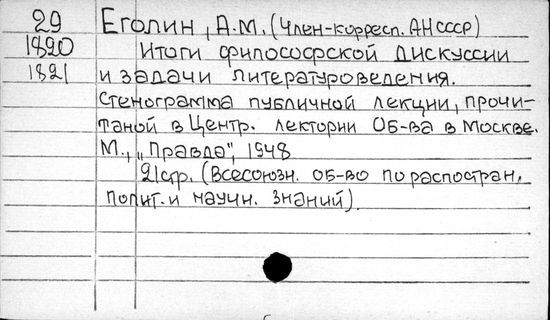 29 Еголин, А.М. (Член-корресп. АН СССР)
1820 Итоги философской дискуссии
1821 и задачи литературоведения.
Стенограмма публичной лекции, прочи-
таной в Центр. лектории Об-ва в Москве.
М., „Правда", 1948
21стр. (Всесоюзн. об-во по распостран.
полит. и научн. знаний).